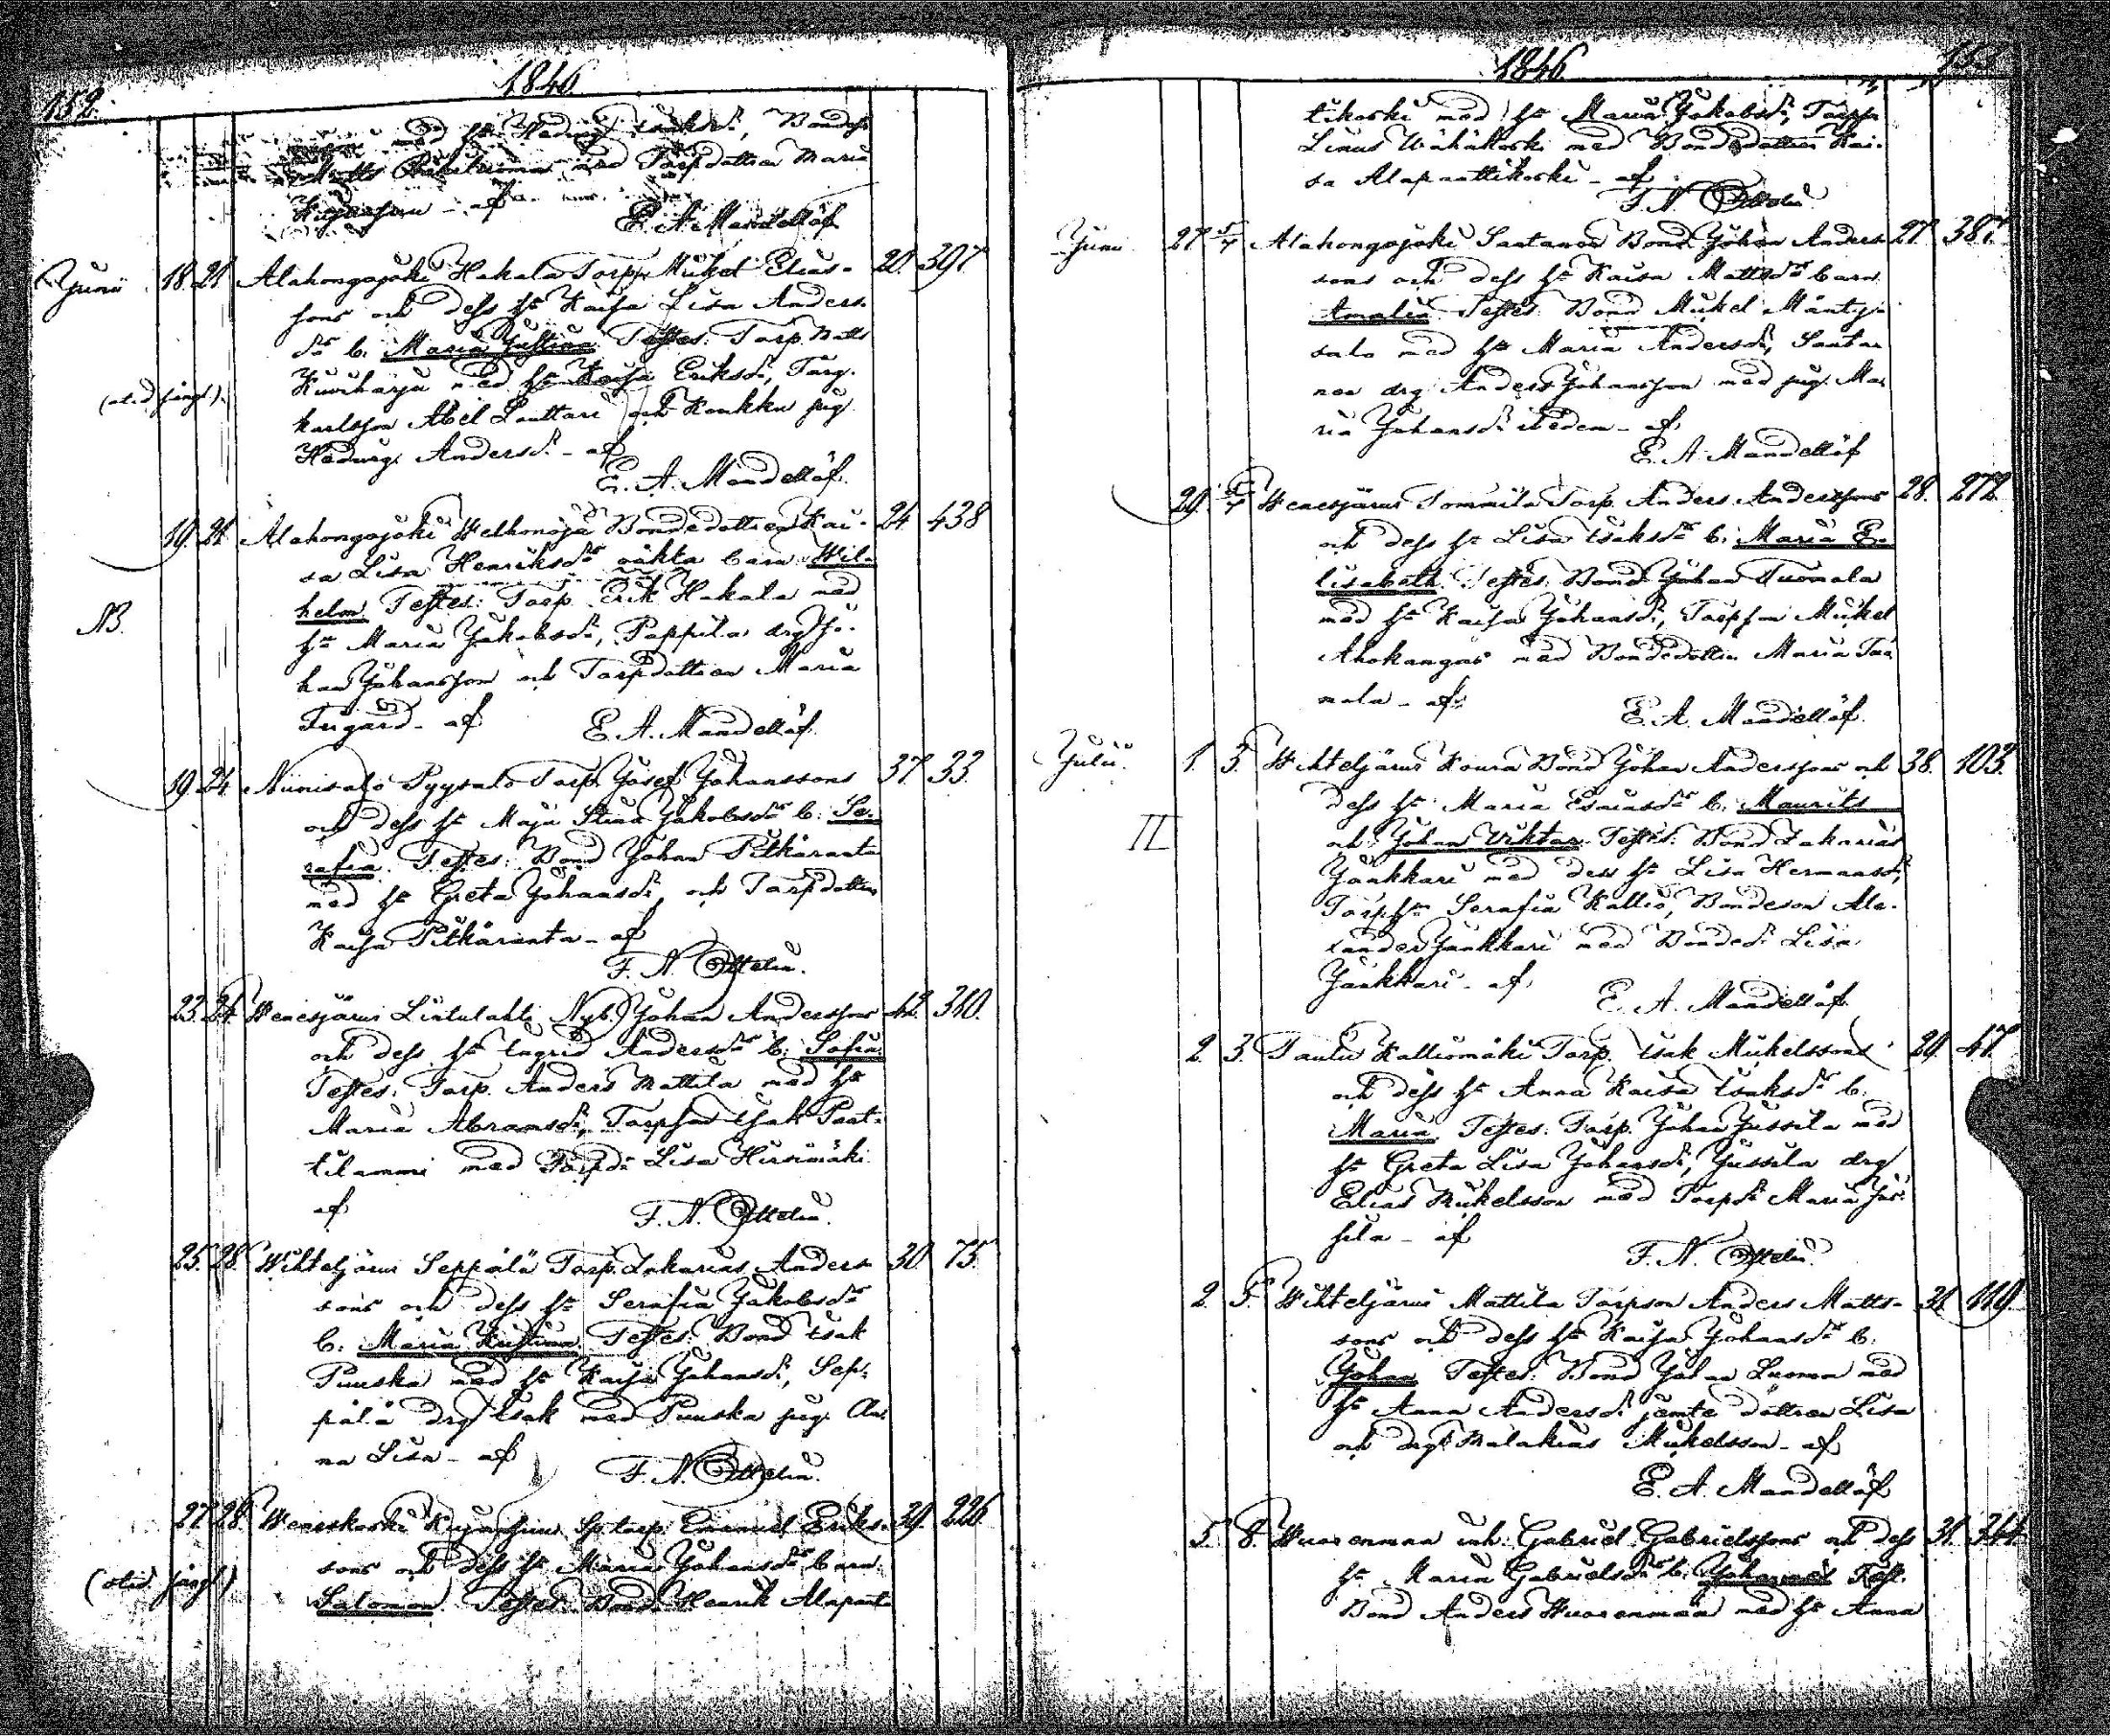 152.
1846
med hu Hedvig Isaksdr, Bondes.
Matts med Torpdottren Maria
af
E. A. Mandellöf
Junii 18. 21. Alahongojoki Hakala Torp. Mikel Elias- 20. 397.
sons och dess hu Kaisa Lisa Anders-
drs b. Maria Justina. Testes: Torp. Matts
Kuuharju med hu Kaisa Eriksdr, Torp.
karlsson Abel Lauttari och Konkku pig.
Hedvig Andersdr - af
E. A. Mandellöf.
19. 21. Alahongojoki Welhonoja Bondedottren Kai- 24. 438
sa Lisa Henriksdrs oäkta barn Wil-
helm. Testes: Torp. Erik Hakala med
NB.
hu Maria Jakobsdr, Pappila drg Jo-
han Johansson och Torpdottren Maria
af E. A. Mandellöf.
19. 24. Niinisalo Pyysalo Torp. Josef Johanssons 37. 33.
och dess hu Maja Stina Jakobsdrs b. Se-
rafia. Testes: Bond Johan Pitkäranta
med hu Greta Johansdr, och Torpdottren
Kaisa Pitkäranta - af
F. N. Ottelin.
23. 24. Wenesjärvi Lintulahti Nyb. Johan Anderssons 42. 310.
och dess hu Ingrid Andersdrs b. Sofia.
Testes: Torp. Anders Mattila med hu
Maria Abramsdr, Torpson Isak Pant-
tilammi med Torpdr Lisa Hirsimäki
af F. N. Ottelin.
25. 28. Wihteljärvi Seppälä Torp. Zakarias Anders- 30. 75.
sons och dess hu Serafia Jakobsdrs
b. Maria Kristina. Testes: Bond Isak
Puuska med hu Kaisa Johansdr, Sep-
pälä drg Isak med Puuska pig. An-
na Lisa - af
F. N. Ottelin.
27. 28. Weneskoski Sptorp. Emanuel Eriks- 39. 226
sons och dess hu Maria Johansdrs barn
Salomon. Testes: Bond. Henrik Alapant-
1846
153
tikoski med hu Maria Jakobsdr, Torpson
Linus Wähäkoski med Bondedottren Kai-
sa Alapanttikoski - af
F. N. Ottelin
Junii 27. 5/7 Alahongojoki Santanoa Bond. Johan Anders- 27. 387.
sons och dess hu Kaisa Mattsdrs barn
Amalia Testes: Bond Mikel Mänty-
salo med hu Maria Andersdr, Santa-
noa drg Anders Johansson med pig. Ma-
ria Johansdr - af
E. A. Mandellöf
29. 5/7 Wenesjärvi Tommila Torp. Anders Anderssons 28. 272.
och dess hu Lisa Isaksdrs b. Maria E-
lisabeth. Testes: Bond Johan Tuomala
med hu Kaisa Johansdr, Torpson Mikel
Ahokangas med Bondedottren Maria Tuo-
mala - af
E. A. Mandellöf.
Julii. 1. 5. Wihteljärvi Koura Bond Johan Anderssons och 38. 103.
dess hu Maria Esaiasdrs b. Maurits
och Johan Viktor. Testes: Bond Zakarias
Jänkkäri med dess hu Lisa Hermansdr,
Torpson Serafia Kallio, Bondeson Ale-
xander Jänkkäri med Bondedr Lisa
Jänkkäri - af
E. A. Mandellöf.
2. 3. Taulu Kalliomäki Torp. Isak Mikelssons 29. 47.
och dess hu Anna Kaisa Isaksdrs b.
Maria. Testes: Torp. Johan Jussila med
hu Greta Lisa Johansdr, Jussila drg
Elias Mikelsson med Torpdr Maria Jus-
sila - af
F. N. Ottelin.
2. 5. Wihteljärvi Mattila Torpson Anders Matts- 31. 119.
sons och dess hu Kaisa Johansdrs b.
Johan Testes: Bond Johan Luoma med
hu Anna Andersdr jemte dottren Lisa
och drg Malakias Mikelsson - af
E. A. Mandellöf
5. 8. Wuorenmaa inh. Gabriel Gabrielssons och dess 31. 344
hu Maria Gabrielsdrs b. Johannes Test.
Bond Anders Wuorenmaa med hu Anna